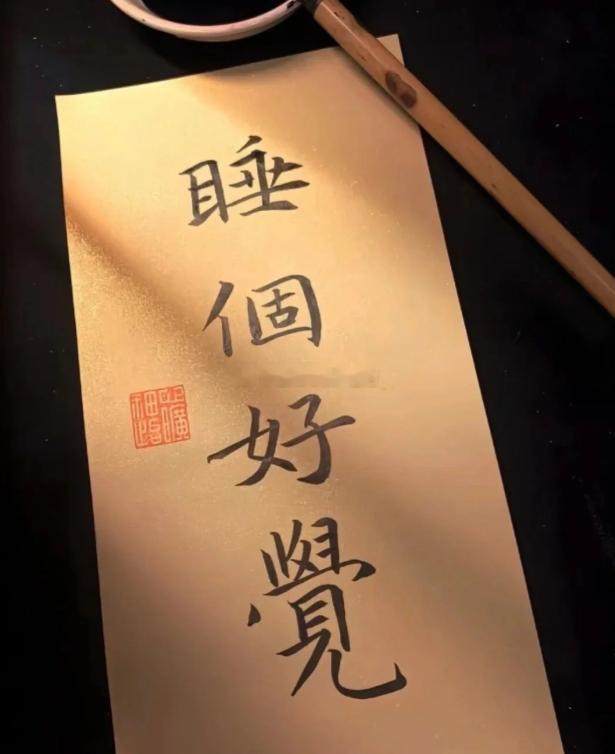 睡個好覺